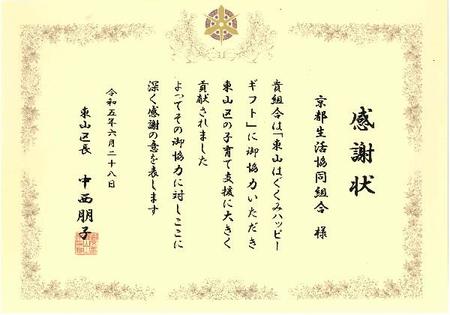 感謝状
京都生活協同組合 様
貴組合は「東山はぐくみハッピー
ギフト」に御協力いただき
東山区の子育て支援に大きく
貢献されました
よってその御協力に対しここに
深く感謝の意を表します
令和五年六月二十八日
東山区長 中西朋子